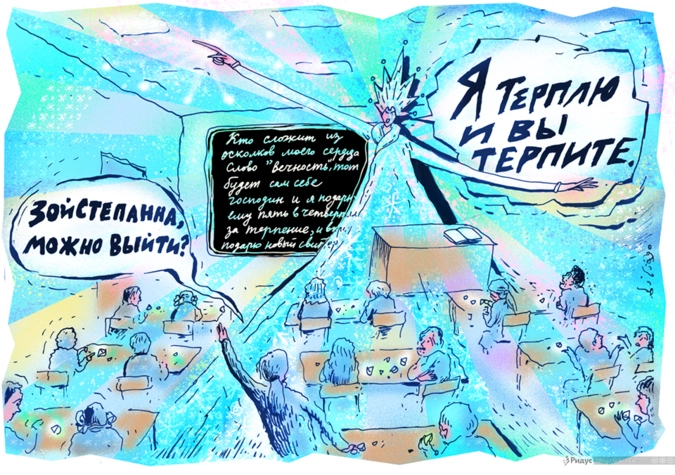 Я ТЕРПЛЮ
И ВЫ
ТЕРПИТЕ.
Кто сложит из
осколков моего сердца
Слово "вечность", тот
будет сам себе
господин и я подарю
ему пять в четверти
за терпение, и
подарю новый
ЗОЙСТЕПАННА,
МОЖНО ВЫЙТИ?
Ридус